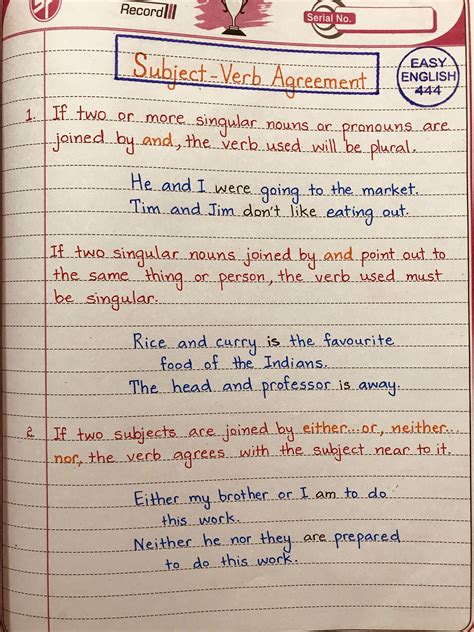 Record
Serial No.
Subject-Verb Agreement
EASY
ENGLISH
444
1. If two or more singular nouns or pronouns are
joined by and, the verb used will be plural.
He and I were going to the market.
Tim and Jim don't like eating out.
If two singular nouns joined by and point out to
the same thing or person, the verb used must
be singular.
Rice and curry is the favourite
food of the Indians.
The head and professor is away.
2. If two subjects are joined by either...or, neither...
nor, the verb agrees with the subject near to it.
Either my brother or I am to do
this work.
Neither he nor they are prepared
to do this work.